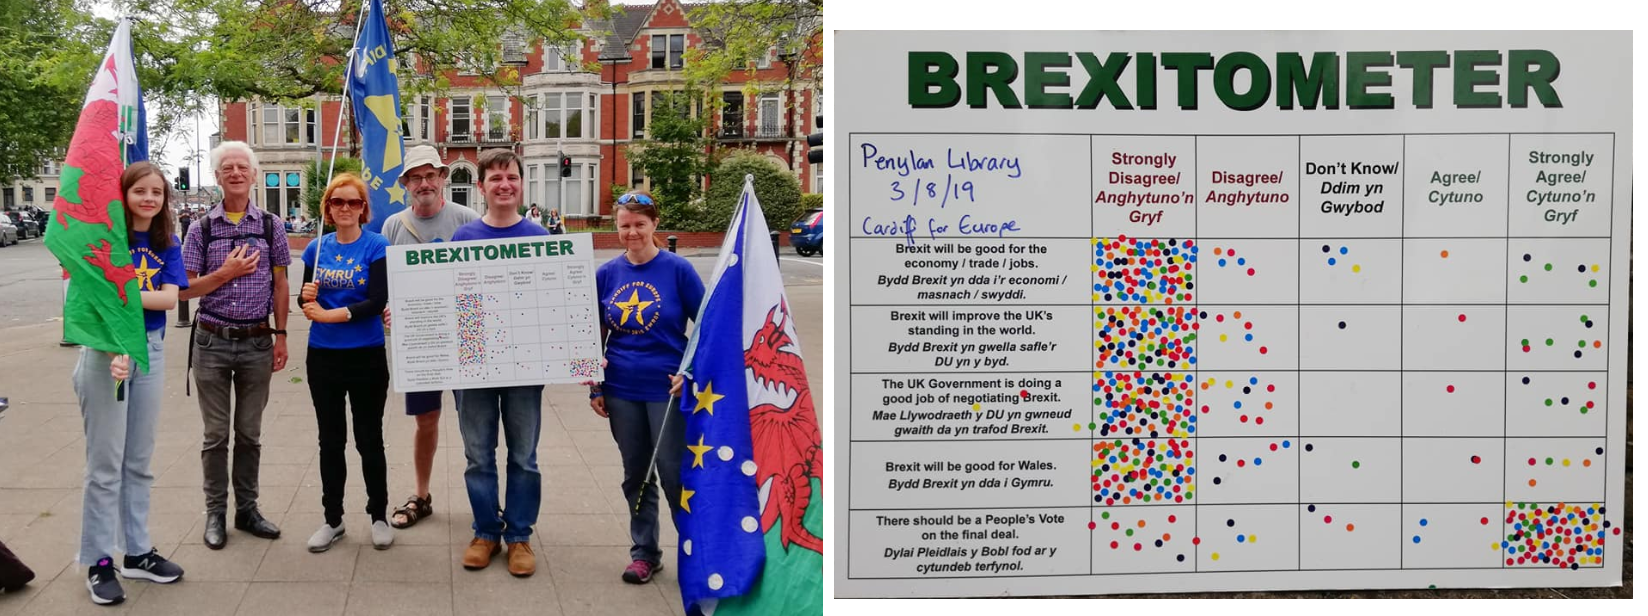 CYMRU
EUROPA
CARDIFF FOR EUROPE
BREXITOMETER
Strongly
Disagree/
Anghytuno'n
Gryf
Disagree/
Anghytuno
Don't Know/
Ddim yn
Gwybod
Agree/
Cytuno
Strongly
Agree/
Cytuno'n
Gryf
BREXITOMETER
Penylan Library
3/8/19
Cardiff for Europe
Strongly
Disagree/
Anghytuno'n
Gryf
Disagree/
Anghytuno
Don't Know/
Ddim yn
Gwybod
Agree/
Cytuno
Strongly
Agree/
Cytuno'n
Gryf
Brexit will be good for the
economy / trade / jobs.
Bydd Brexit yn dda i'r economi /
masnach / swyddi.
Brexit will improve the UK's
standing in the world.
Bydd Brexit yn gwella safle'r
DU yn y byd.
The UK Government is doing a
good job of negotiating Brexit.
Mae Llywodraeth y DU yn gwneud
gwaith da yn trafod Brexit.
Brexit will be good for Wales.
Bydd Brexit yn dda i Gymru.
There should be a People's Vote
on the final deal.
Dylai Pleidlais y Bobl fod ar y
cytundeb terfynol.